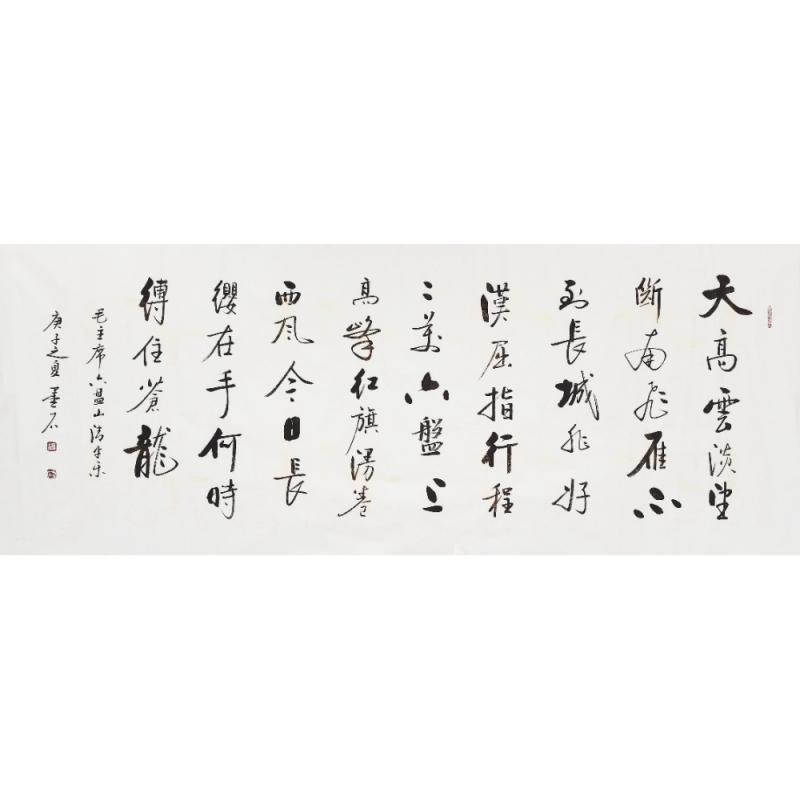 天高雲淡望
斷南飛雁不
到長城非好
漢屈指行程
二萬六盤上
高峰紅旗漫卷
西風今日長
纓在手何時
縛住蒼龍
毛主席六盤山清平樂
庚子之夏 墨石